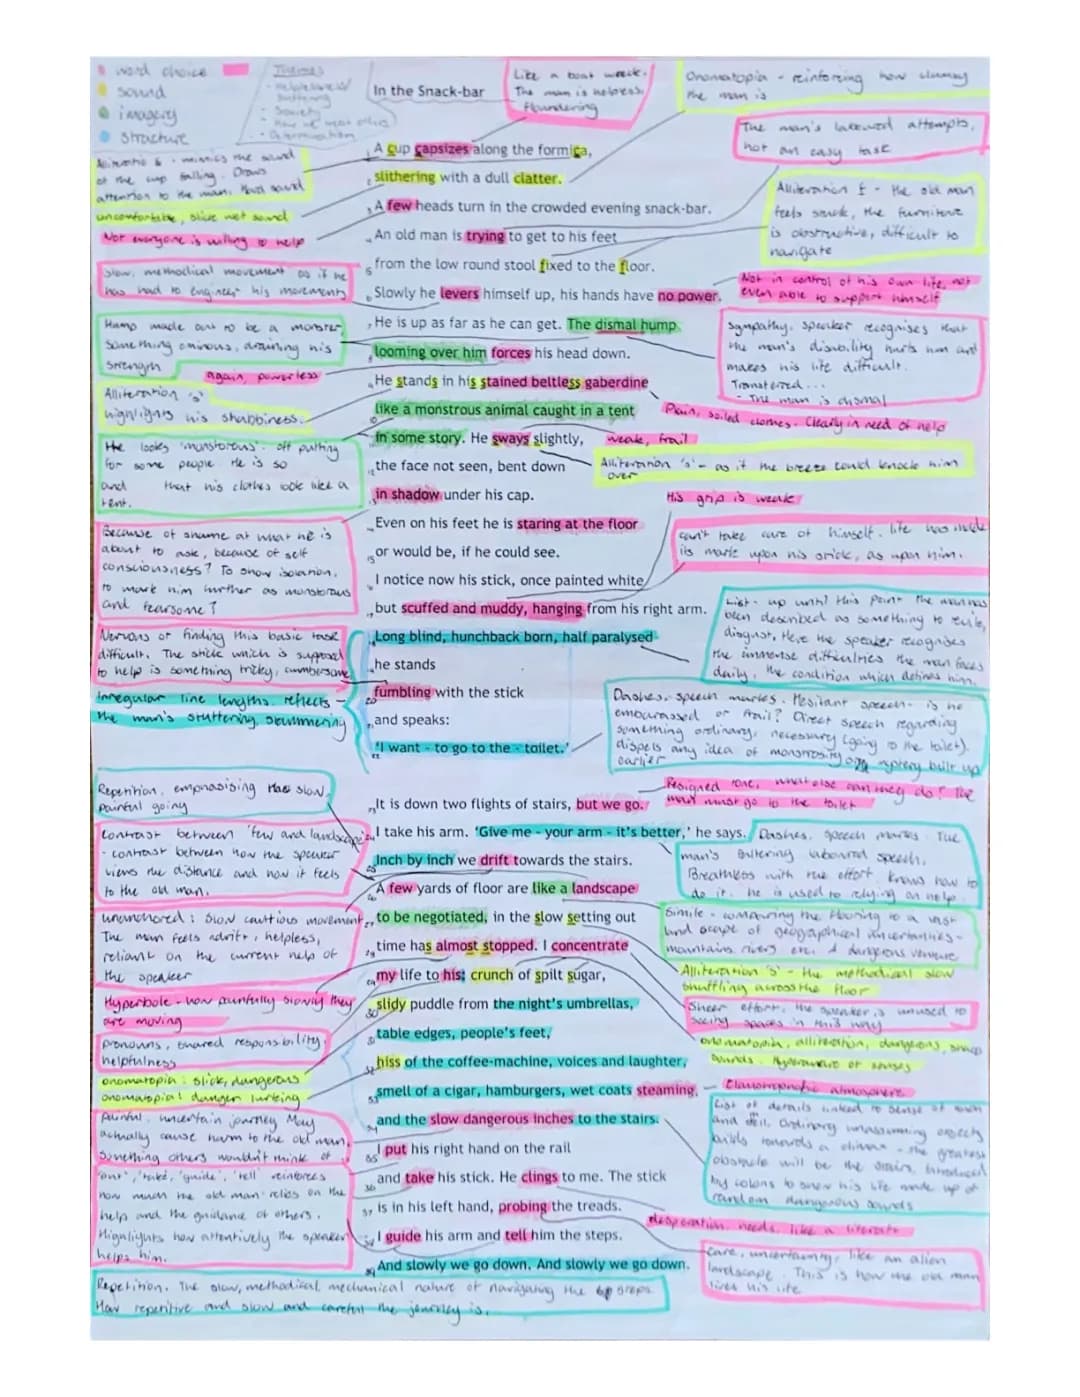 word choice
sound
imagery
structure
Themes
- Helplessness/
suffering
- Society
- How we treat others
- Determination
In the Snack-bar
Like a boat wreck.
The man is helpless.
Floundering
Onomatopia - reinforcing how clumsy
the man is
The man's laboured attempts,
not an easy task
Alliteratio - mimics the sound
of the cup falling. Draws
attention to the man. Hard sound
uncomfortable, slick wet sound
Not everyone is willing to help
Alliteration f - the old man
feels stuck, the furniture
is obstructive, difficult to
navigate
A cup capsizes along the formica,
2 slithering with a dull clatter.
3 A few heads turn in the crowded evening snack-bar.
4 An old man is trying to get to his feet
5 from the low round stool fixed to the floor.
6 Slowly he levers himself up, his hands have no power.
Slow, methodical movement as if he
has had to engineer his movements
Not in control of his own life, not
even able to support himself
7 He is up as far as he can get. The dismal hump
8 looming over him forces his head down.
9 He stands in his stained beltless gaberdine
like a monstrous animal caught in a tent
in some story. He sways slightly,
12 the face not seen, bent down
13 in shadow under his cap.
Hump made out to be a monster,
something ominous, draining his
strength
again, powerless
Alliteration 's'
highlights his shabbiness.
Sympathy. speaker recognises that
the man's disability hurts him and
makes his life difficult.
Transferred ...
- The man is dismal
Plain, soiled clothes. Clearly in need of help
weak, frail
Alliteration 's' - as if the breeze could knock him
over
He looks 'monstorous' - off putting
for some people. He is so
and that his clothes look like a
tent.
His grip is weak
Because of shame at what he is
about to ask, because of self
consciousness? To show isolation,
to mark him further as monstorous
and fearsome?
can't take care of himself. life has made
its mark upon his stick, as upon him.
14 Even on his feet he is staring at the floor
15 or would be, if he could see.
16 I notice now his stick, once painted white
17 but scuffed and muddy, hanging from his right arm.
18 Long blind, hunchback born, half paralysed
19 he stands
20 fumbling with the stick
21 and speaks:
22 'I want - to go to the - toilet.'
List - up until this point the man has
been described as something to revile,
disgust, Here the speaker recognises
the immense difficulties the man faces
daily, the condition which defines him.
Nervous or finding this basic task
difficult. The stick which is supposed
to help is something tricky, cumbersome
Irregular line lengths. reflects -
the man's stuttering, stammering
Dashes, speech marks. Hesitant speech - is he
embarassed or frail? Direct speech regarding
something ordinary, necessary (going to the toilet).
dispels any idea of monstrosity or mystery built up
earlier
Repetition, emphasising the slow,
painful going
Resigned tone, what else can they do? The
man must go to the toilet
23 It is down two flights of stairs, but we go.
24 I take his arm. 'Give me - your arm - it's better,' he says.
25 Inch by inch we drift towards the stairs.
26 A few yards of floor are like a landscape
27 to be negotiated, in the slow setting out
28 time has almost stopped. I concentrate
29 my life to his: crunch of spilt sugar,
30 slidy puddle from the night's umbrellas,
31 table edges, people's feet,
32 hiss of the coffee-machine, voices and laughter,
33 smell of a cigar, hamburgers, wet coats steaming,
34 and the slow dangerous inches to the stairs.
35 I put his right hand on the rail
36 and take his stick. He clings to me. The stick
37 is in his left hand, probing the treads.
38 I guide his arm and tell him the steps.
39 And slowly we go down. And slowly we go down.
Contrast between 'few and landscape'
- contrast between how the speaker
views the distance and how it feels
to the old man.
Dashes, speech marks. The
man's faltering laboured speech.
Breathless with the effort knows how to
do it. he is used to relying on help
unanchored: slow cautious movement,
The man feels adrift, helpless,
reliant on the current help of
the speaker
Simile - comparing the flooring to a vast
land scape of geographical uncertainties -
mountains, rivers etc. A dangerous venture
Alliteration 's' - the methodical slow
shuffling across the floor
Hyperbole - how painfully slowly they
are moving
Sheer effort, the speaker is unused to
seeing spaces in this way
pronouns, shared responsibility,
helpfulness
onomatopia, alliteration, dangerous, sharp
sounds. Hyperaware of senses
onomatopia: slick, dangerous
onomatopia: danger lurking
Claustrophobic atmosphere
Painful, uncertain journey May
actually cause harm to the old man.
Something others wouldn't think of
List of details linked to sense of touch
and . Ordinary unassuming objects
builds towards a climax - the greatest
obstacle will be the stairs. Introduced
by colons to show his life made up of
random dangerous sounds
'put', 'take', 'guide', 'tell' reinforces
how much the old man relies on the
help and the guidance of others.
Highlights how attentively the speaker
helps him.
desperation. needs. like a literate
Care, uncertainty, like an alien
landscape. This is how the old man
lives his life
Repetition. The slow, methodical, mechanical nature of navigating the steps.
How repetitive and slow and careful the journey is.